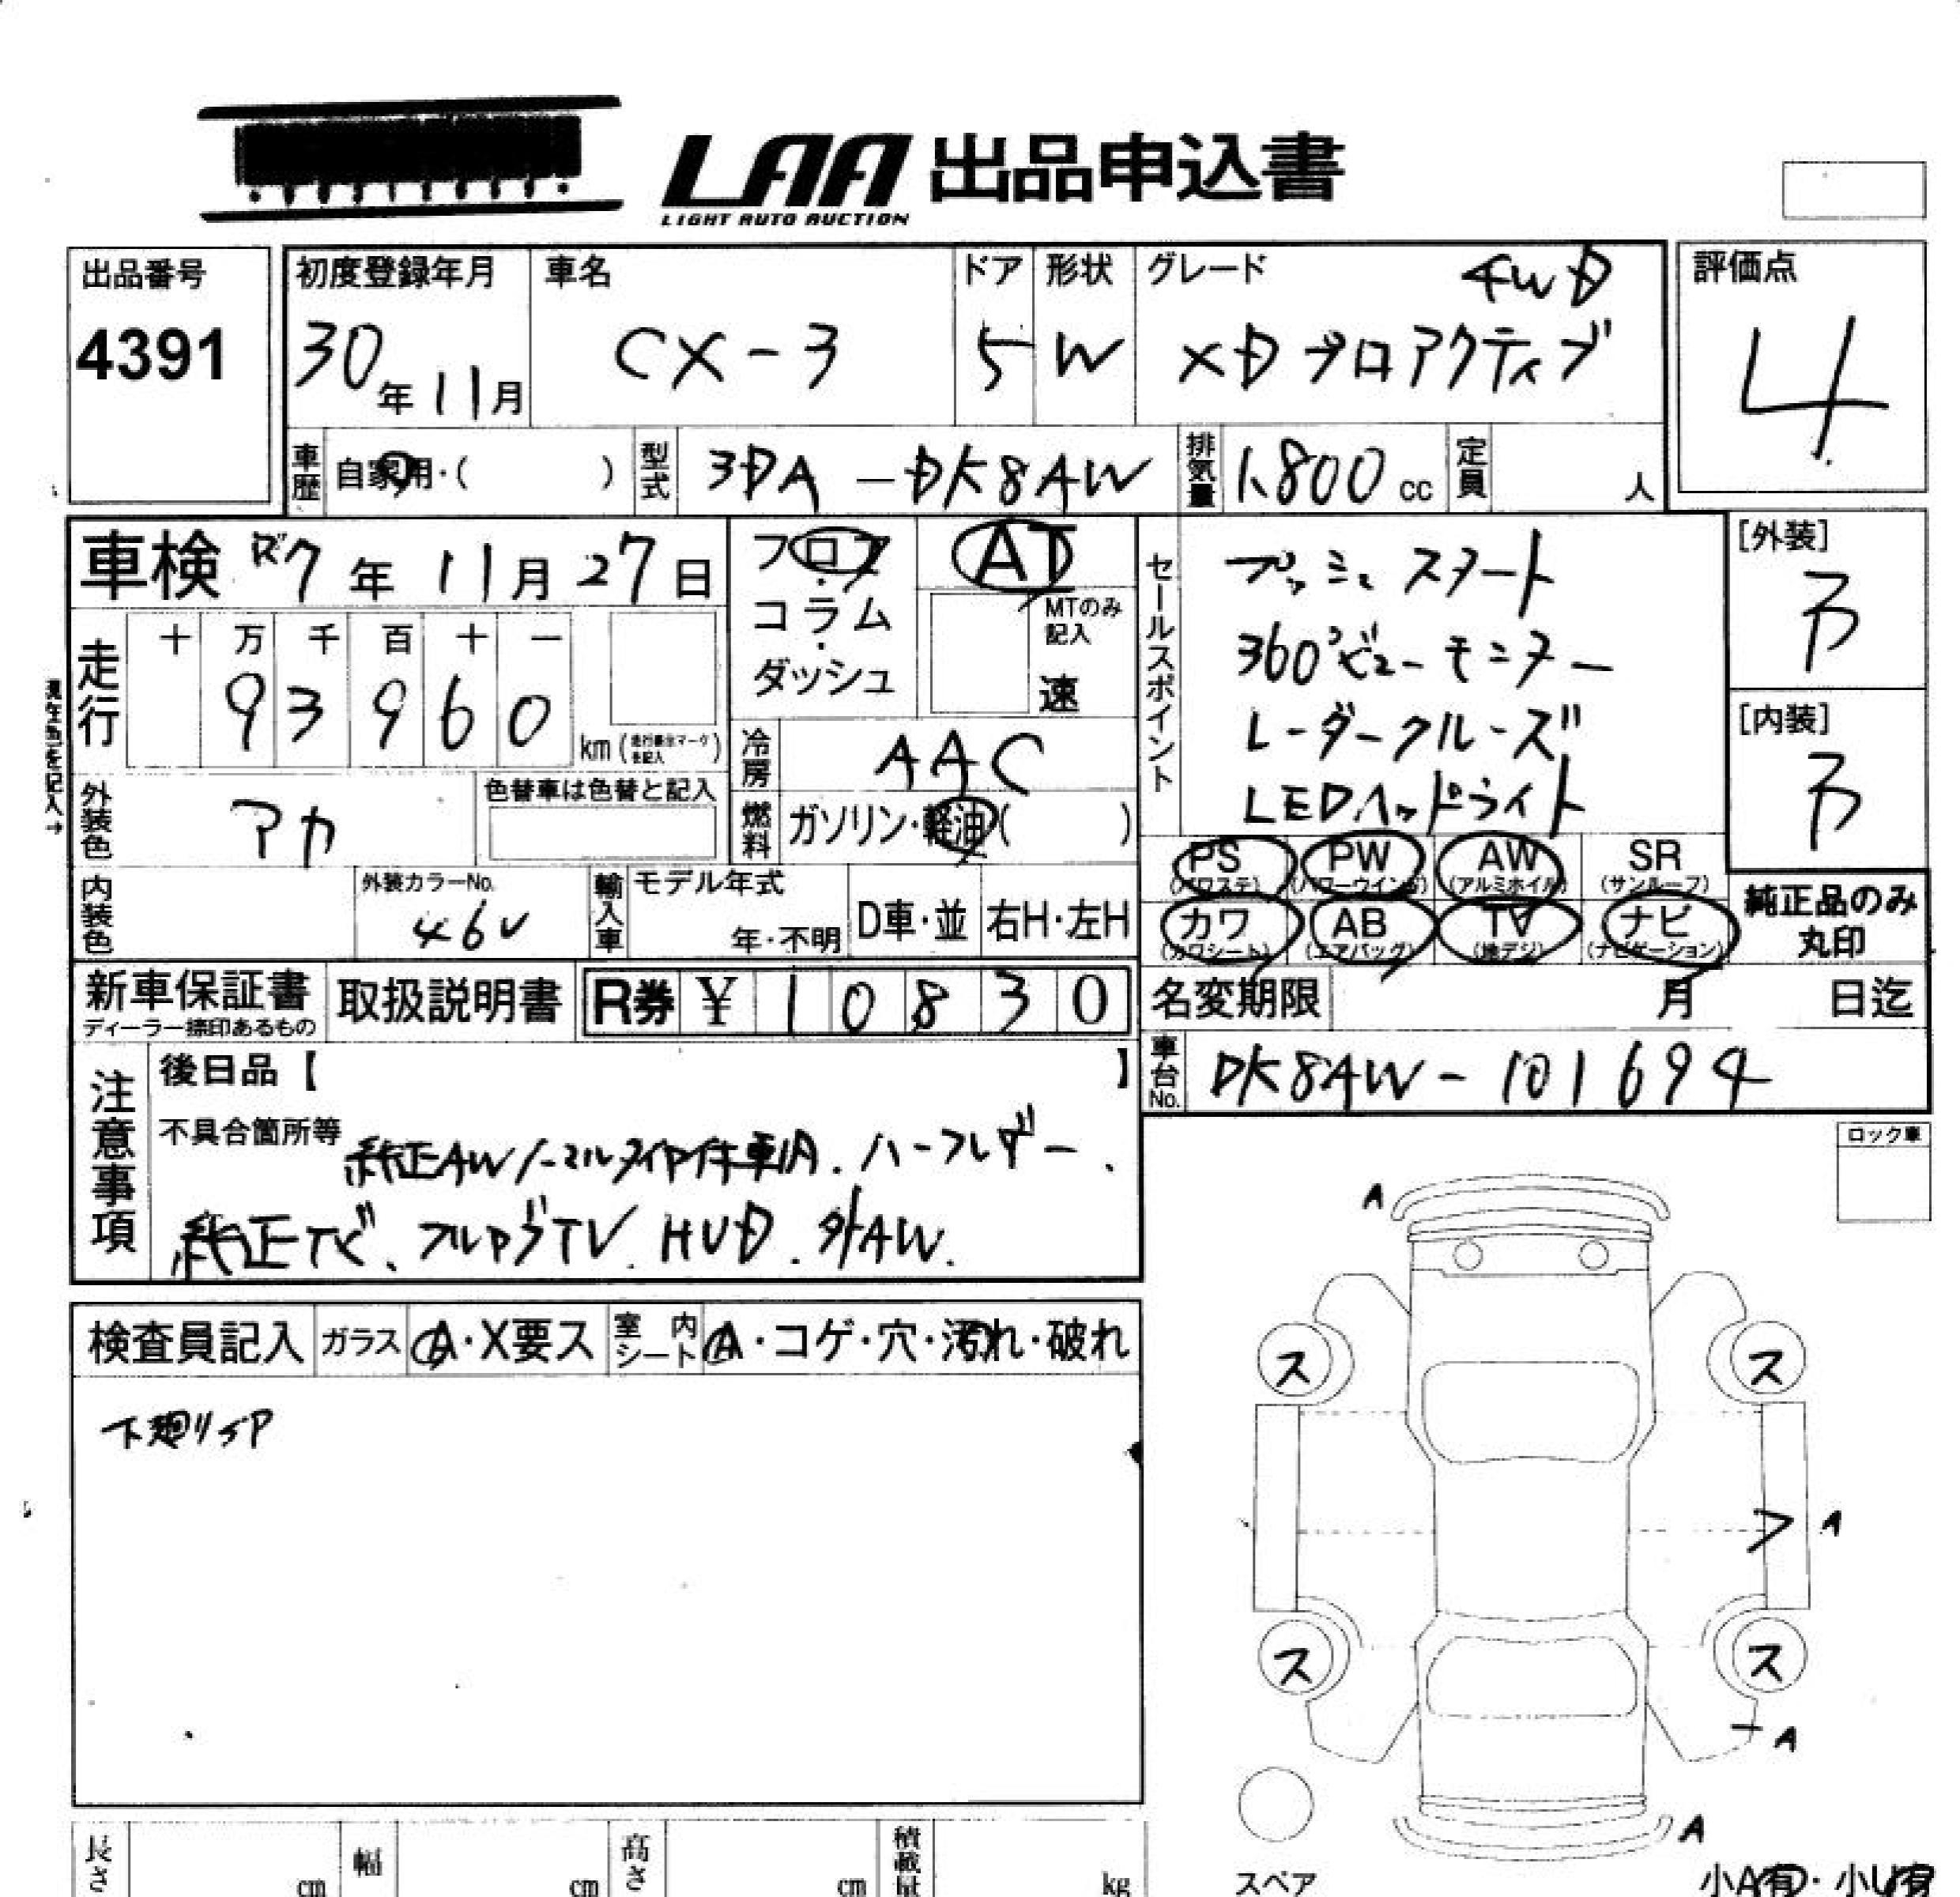 LAA 出品申込書
LIGHT AUTO AUCTION
出品番号
4391
初度登録年月
30年11月
車名
CX-3
ドア
5
形状
W
グレード
4WD
XDプロアクティブ
評価点
4
車歴 自家用・( )
型式 3DA-DK8AW
排気量 1,800cc
定員 人
車検 R7年11月27日
フロア・コラム・ダッシュ
AT
MTのみ記入
速
セールスポイント
プッシュスタート
360°ビューモニター
レーダークルーズ
LEDヘッドライト
[外装]
[内装]
現在色を記入→
走行 十 万 千 百 十 一
9 3 9 6 0 km
冷房 AAC
燃料 ガソリン・軽油( )
外装色 アカ
色替車は色替と記入
内装色
外装カラーNo.
46V
輸入車 モデル年式
年・不明
D車・並 右H・左H
PS (パワステ) PW (パワーウインド) AW (アルミホイル) SR (サンルーフ)
カワ (カワシート) AB (エアバッグ) TV (地デジ) ナビ (ナビゲーション)
純正品のみ
丸印
新車保証書
ディーラー捺印あるもの
取扱説明書
R券 ¥ 1 0 8 3 0
名変期限 月 日迄
車台No. DK8AW-101694
注意事項
後日品【 】
不具合箇所等
純正AW ノーマルタイヤ付車内、ハーフレザー、
純正ナビ、フルセグTV、HUD、外AW、
ロック車
検査員記入 ガラス A・X要ス 室内シート A・コゲ・穴・汚れ・破れ
A
ス ス
A
ス ス
A
A
スペア
小A有・小U有
長さ cm 幅 cm 高さ cm 積載量 kg